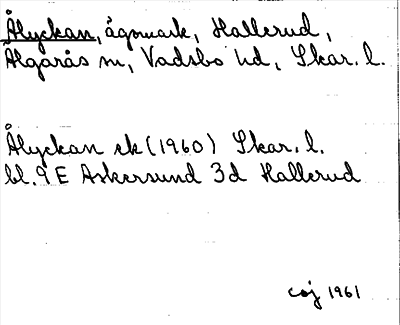 Ålyckan, ägomark, Hallerud,
Älgarås sn, Vadsbo hd, Skar. l.
Ålyckan ek (1960) Skar. l.
bl. 9E Askersund 3d Hallerud
coj 1961